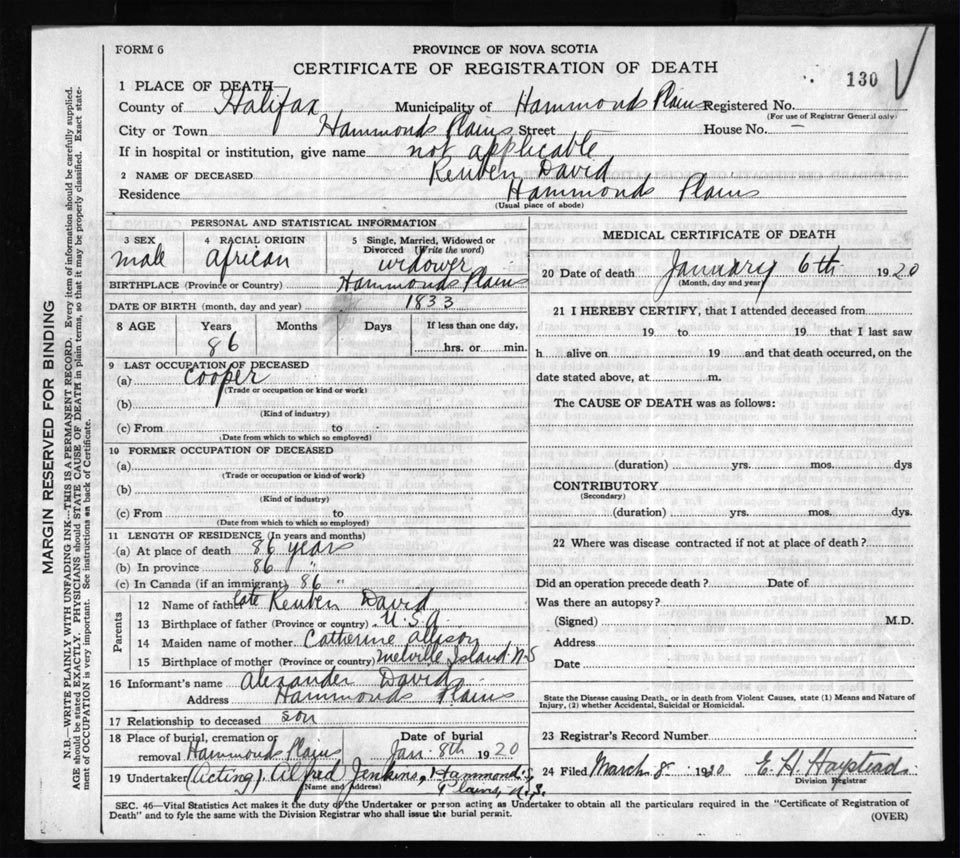 FORM 6
PROVINCE OF NOVA SCOTIA
CERTIFICATE OF REGISTRATION OF DEATH
130
1 PLACE OF DEATH
County of Halifax Municipality of Hammonds Plains Registered No.
(For use of Registrar General only)
City or Town Hammonds Plains Street House No. –
If in hospital or institution, give name not applicable
2 NAME OF DECEASED Reuben David
Residence Hammonds Plains
(Usual place of abode)
PERSONAL AND STATISTICAL INFORMATION
3 SEX 4 RACIAL ORIGIN 5 Single, Married, Widowed or Divorced (Write the word)
male african widower
BIRTHPLACE (Province or Country) Hammonds Plains
DATE OF BIRTH (month, day and year) 1833
8 AGE Years Months Days If less than one day,
86 hrs. or min.
9 LAST OCCUPATION OF DECEASED
(a) cooper
(Trade or occupation or kind of work)
(b)
(Kind of industry)
(c) From to
(Date from which to which so employed)
10 FORMER OCCUPATION OF DECEASED
(a)
(Trade or occupation or kind of work)
(b)
(Kind of industry)
(c) From to
(Date from which to which so employed)
11 LENGTH OF RESIDENCE (In years and months)
(a) At place of death 86 years
(b) In province 86 "
(c) In Canada (if an immigrant) 86 "
Parents
12 Name of father late Reuben David
13 Birthplace of father (Province or country) U.S.A
14 Maiden name of mother Catherine Allison
15 Birthplace of mother (Province or country) Melville Island N.S
16 Informant's name Alexander David
Address Hammonds Plains
17 Relationship to deceased son
18 Place of burial, cremation or removal Hammonds Plains Date of burial Jan. 8th 1920
19 Undertaker (Acting) Alfred Jenkins, Hammonds Plains, N.S.
(Name and Address)
MEDICAL CERTIFICATE OF DEATH
20 Date of death January 6th 1920
(Month, day and year)
21 I HEREBY CERTIFY, that I attended deceased from
19 to 19 that I last saw
h alive on 19 and that death occurred, on the
date stated above, at m.
The CAUSE OF DEATH was as follows:
(duration) yrs. mos. dys
CONTRIBUTORY
(Secondary)
(duration) yrs. mos. dys.
22 Where was disease contracted if not at place of death?
Did an operation precede death? Date of
Was there an autopsy?
(Signed) M.D.
Address
Date
State the Disease causing Death, or in death from Violent Causes, state (1) Means and Nature of
Injury, (2) whether Accidental, Suicidal or Homicidal.
23 Registrar's Record Number
24 Filed March 8 1920 E. H.
Division Registrar
SEC. 46—Vital Statistics Act makes it the duty of the Undertaker or person acting as Undertaker to obtain all the particulars required in the "Certificate of Registration of
Death" and to fyle the same with the Division Registrar who shall issue the burial permit.
(OVER)
MARGIN RESERVED FOR BINDING
N.B.—WRITE PLAINLY WITH UNFADING INK—THIS IS A PERMANENT RECORD. Every item of information should be carefully supplied.
AGE should be stated EXACTLY. PHYSICIANS should STATE CAUSE OF DEATH in plain terms, so that it may be properly classified. Exact state-
ment of OCCUPATION is very important. See instructions on back of Certificate.